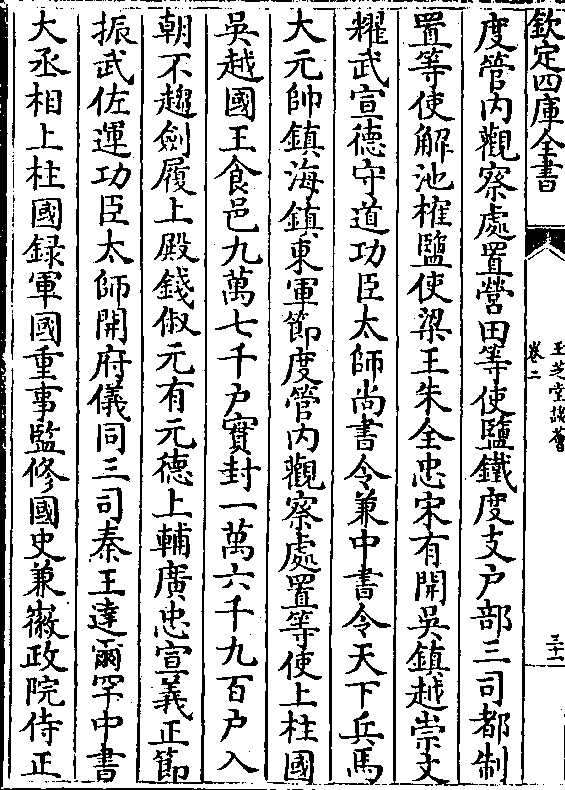 欽定四庫全書
玉芝堂談薈
卷二
三十一
度管内觀察處置營田等使鹽鐵度支户部三司都制
置等使解池榷鹽使梁王朱全忠宋有開吳鎮越崇文
耀武宣德守道功臣太師尚書令兼中書令天下兵馬
大元帥鎮海鎮東軍節度管内觀察處置等使上柱國
吳越國王食邑九萬七千户實封一萬六千九百户入
朝不趨劍履上殿錢俶元有元德上輔廣忠宣義正節
振武佐運功臣太師開府儀同三司秦王達爾罕中書
大丞相上柱國録軍國重事監修國史兼徽政院侍正